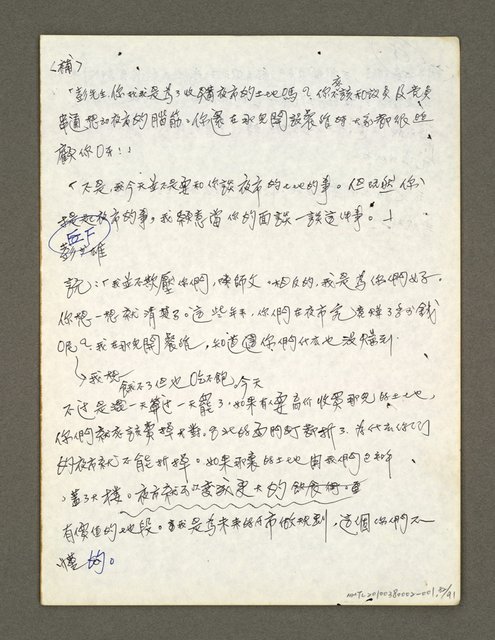 （補）
「彭先生，你找我是為了收購夜市的土地嗎？你不應該和議員及黃員
串通想動夜市的腦筋。你還在那兒開設餐館時大家都很照
顧你呀！」
「不是，我今天並不是要和你談夜市的土地的事。但既然你
提起夜市的事，我願意當你的面談一談這件事。」
彭英雄
說：「我並不欺壓你們，陳師父。相反的，我是為你們好。
你想一想就清楚了。這些年來，你們在夜市究竟賺了多少錢
呢？我在那兒開餐館，知道還你們什麼也沒賺到
我想
餓不了但也吃不飽。今天
不過是過一天算一天罷了，如果有人要高價收買那兒的土地，
你們就應該賣掉才對。
的夜市就不能拆掉。如果那裏的土地由我們
蓋了大樓。夜市就可以變成更大的飲食街。
有價值的地段。我是為未來的A市做規劃，這個你們不
懂的。
NMTL20100380002-001